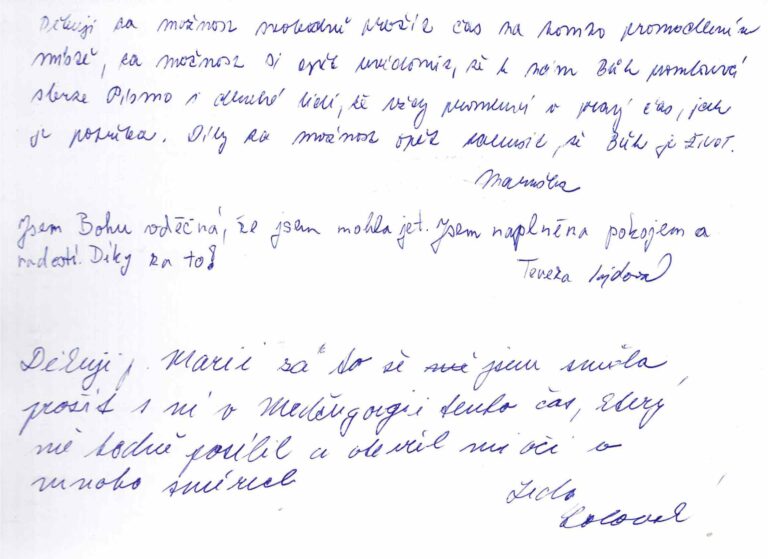 Děkuji za možnost svobodně prožít čas na tomto promodleném
místě, za možnost si opět uvědomit, že k nám Bůh promlouvá
skrze Písmo i druhé lidi, že vždy promluví v pravý čas, jak
je potřeba. Díky za možnost opět zakusit, že Bůh je život.
Maruška
Jsem Bohu vděčná, že jsem mohla jet. Jsem naplněna pokojem a
radostí. Díky za to!
Tereza
Děkuji p. Marii za to že jsem směla
prožít s ní v Medžugorgii tento čas, který
mě hodně posílil a otevřel mi oči v
mnoha směrech